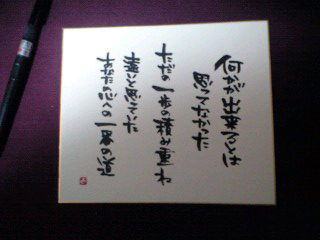 何かが出来るとは
思ってなかった
ただの一歩の積み重ね
遠いと思っていた
あなたの心への一番の道